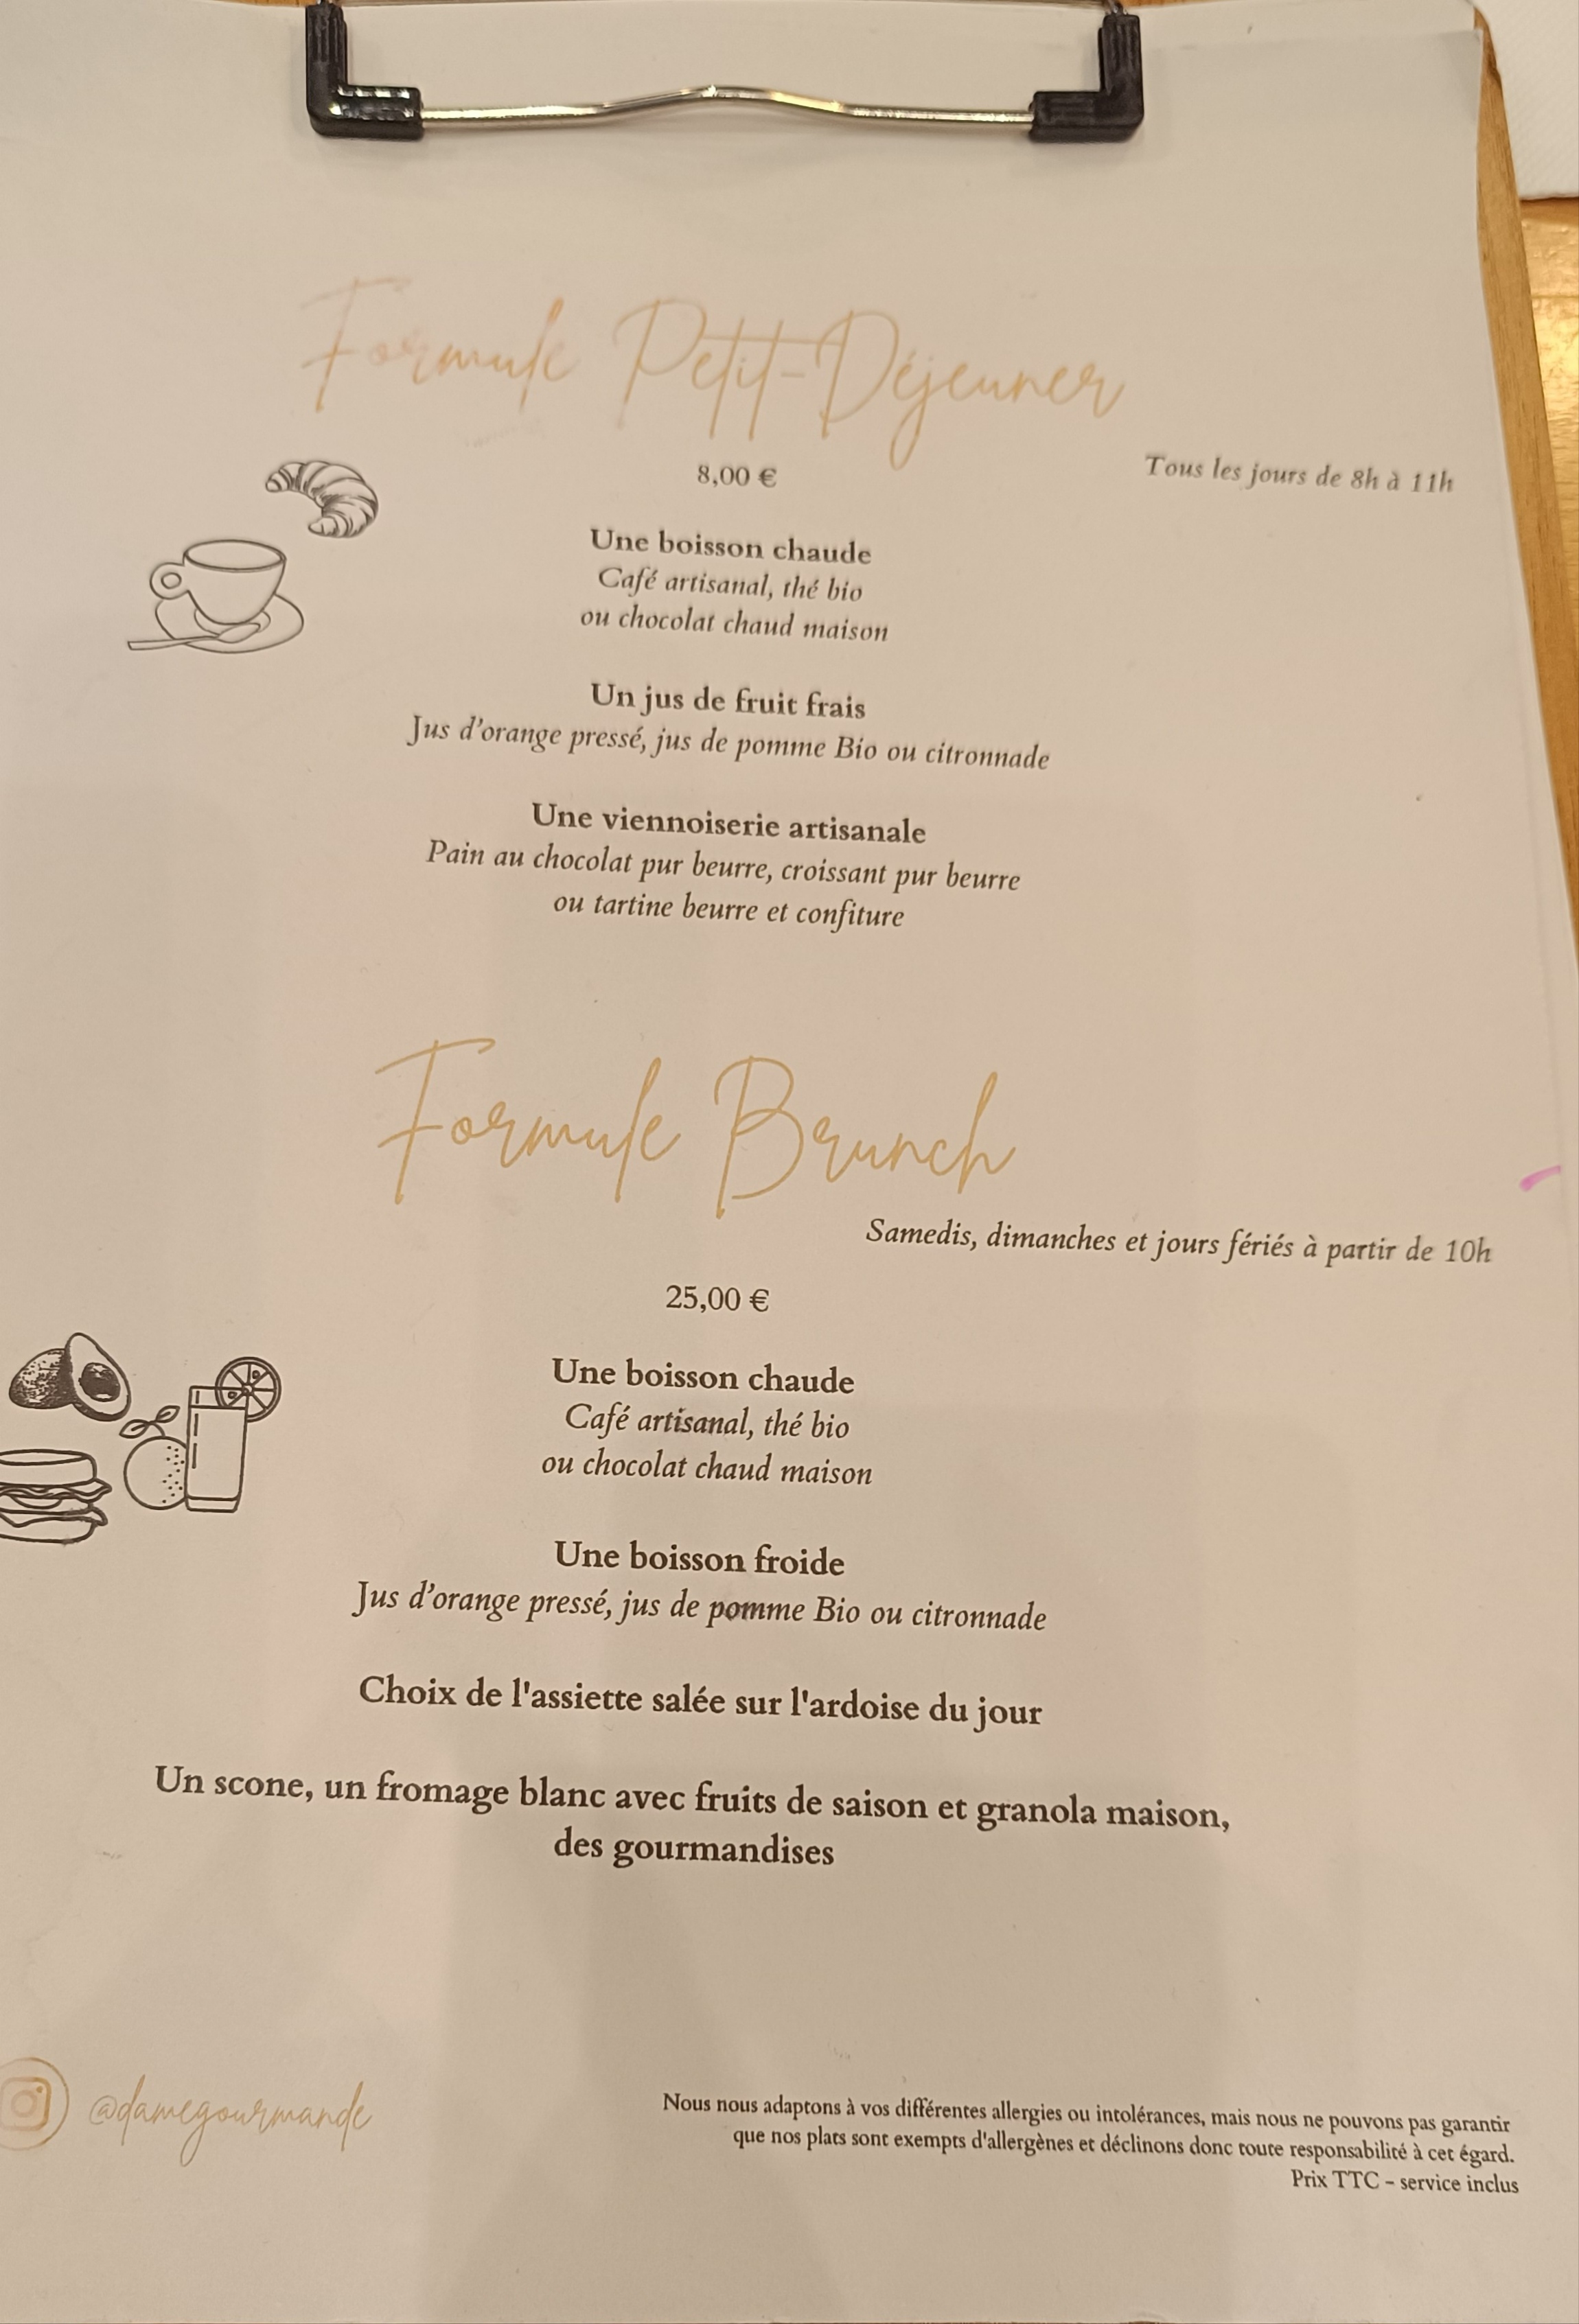 Formule Petit-Déjeuner
8,00 €
Tous les jours de 8h à 11h
Une boisson chaude
Café artisanal, thé bio
ou chocolat chaud maison
Un jus de fruit frais
Jus d'orange pressé, jus de pomme Bio ou citronnade
Une viennoiserie artisanale
Pain au chocolat pur beurre, croissant pur beurre
ou tartine beurre et confiture
Formule Brunch
Samedis, dimanches et jours fériés à partir de 10h
25,00 €
Une boisson chaude
Café artisanal, thé bio
ou chocolat chaud maison
Une boisson froide
Jus d'orange pressé, jus de pomme Bio ou citronnade
Choix de l'assiette salée sur l'ardoise du jour
Un scone, un fromage blanc avec fruits de saison et granola maison,
des gourmandises
@damegourmande
Nous nous adaptons à vos différentes allergies ou intolérances, mais nous ne pouvons pas garantir
que nos plats sont exempts d'allergènes et déclinons donc toute responsabilité à cet égard.
Prix TTC - service inclus